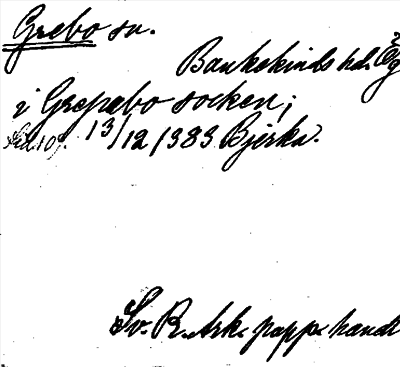 Grebo sn.
Bankekinds hd. Ög
i Grepabo socken;
13/12 1383 Bjerka.
Sv. R. Ark. papp. handl